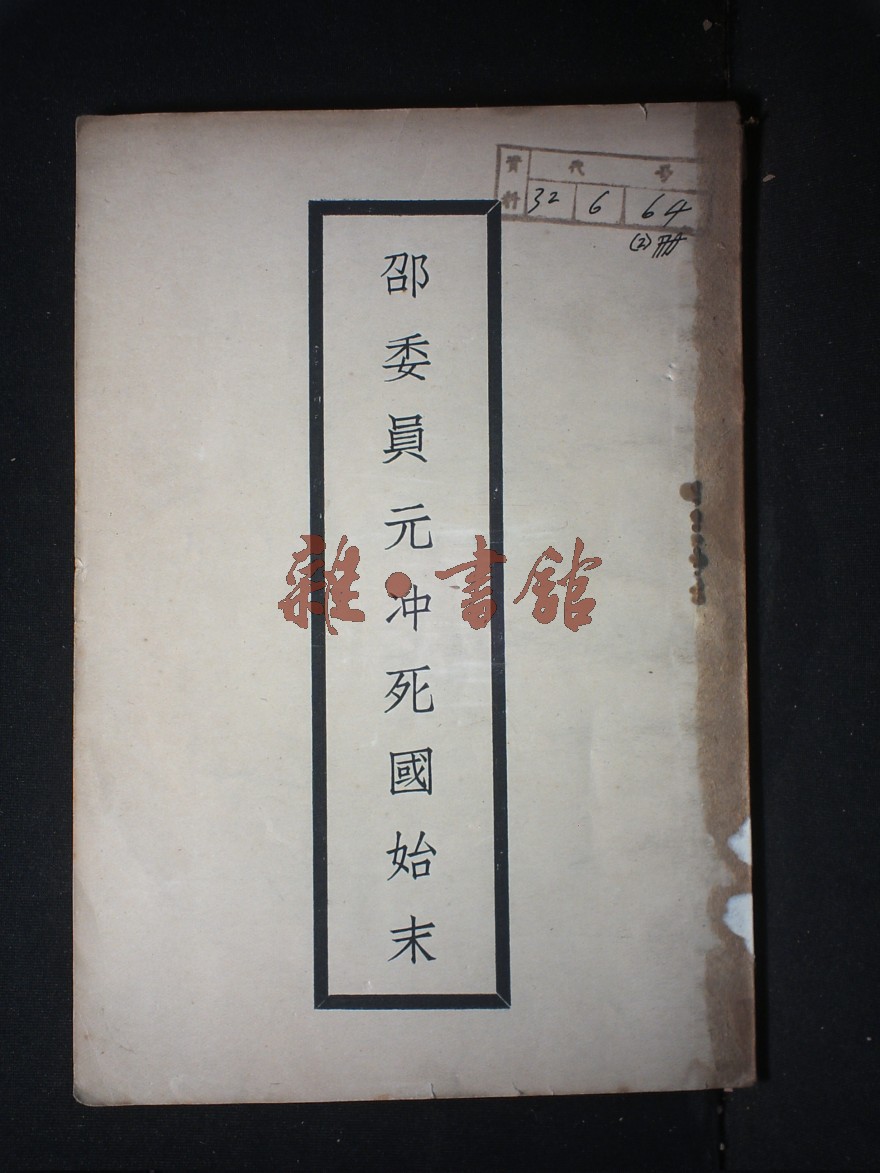 資料 代號
32 6 64
(2)冊
邵委員元冲死國始末
雜·書館